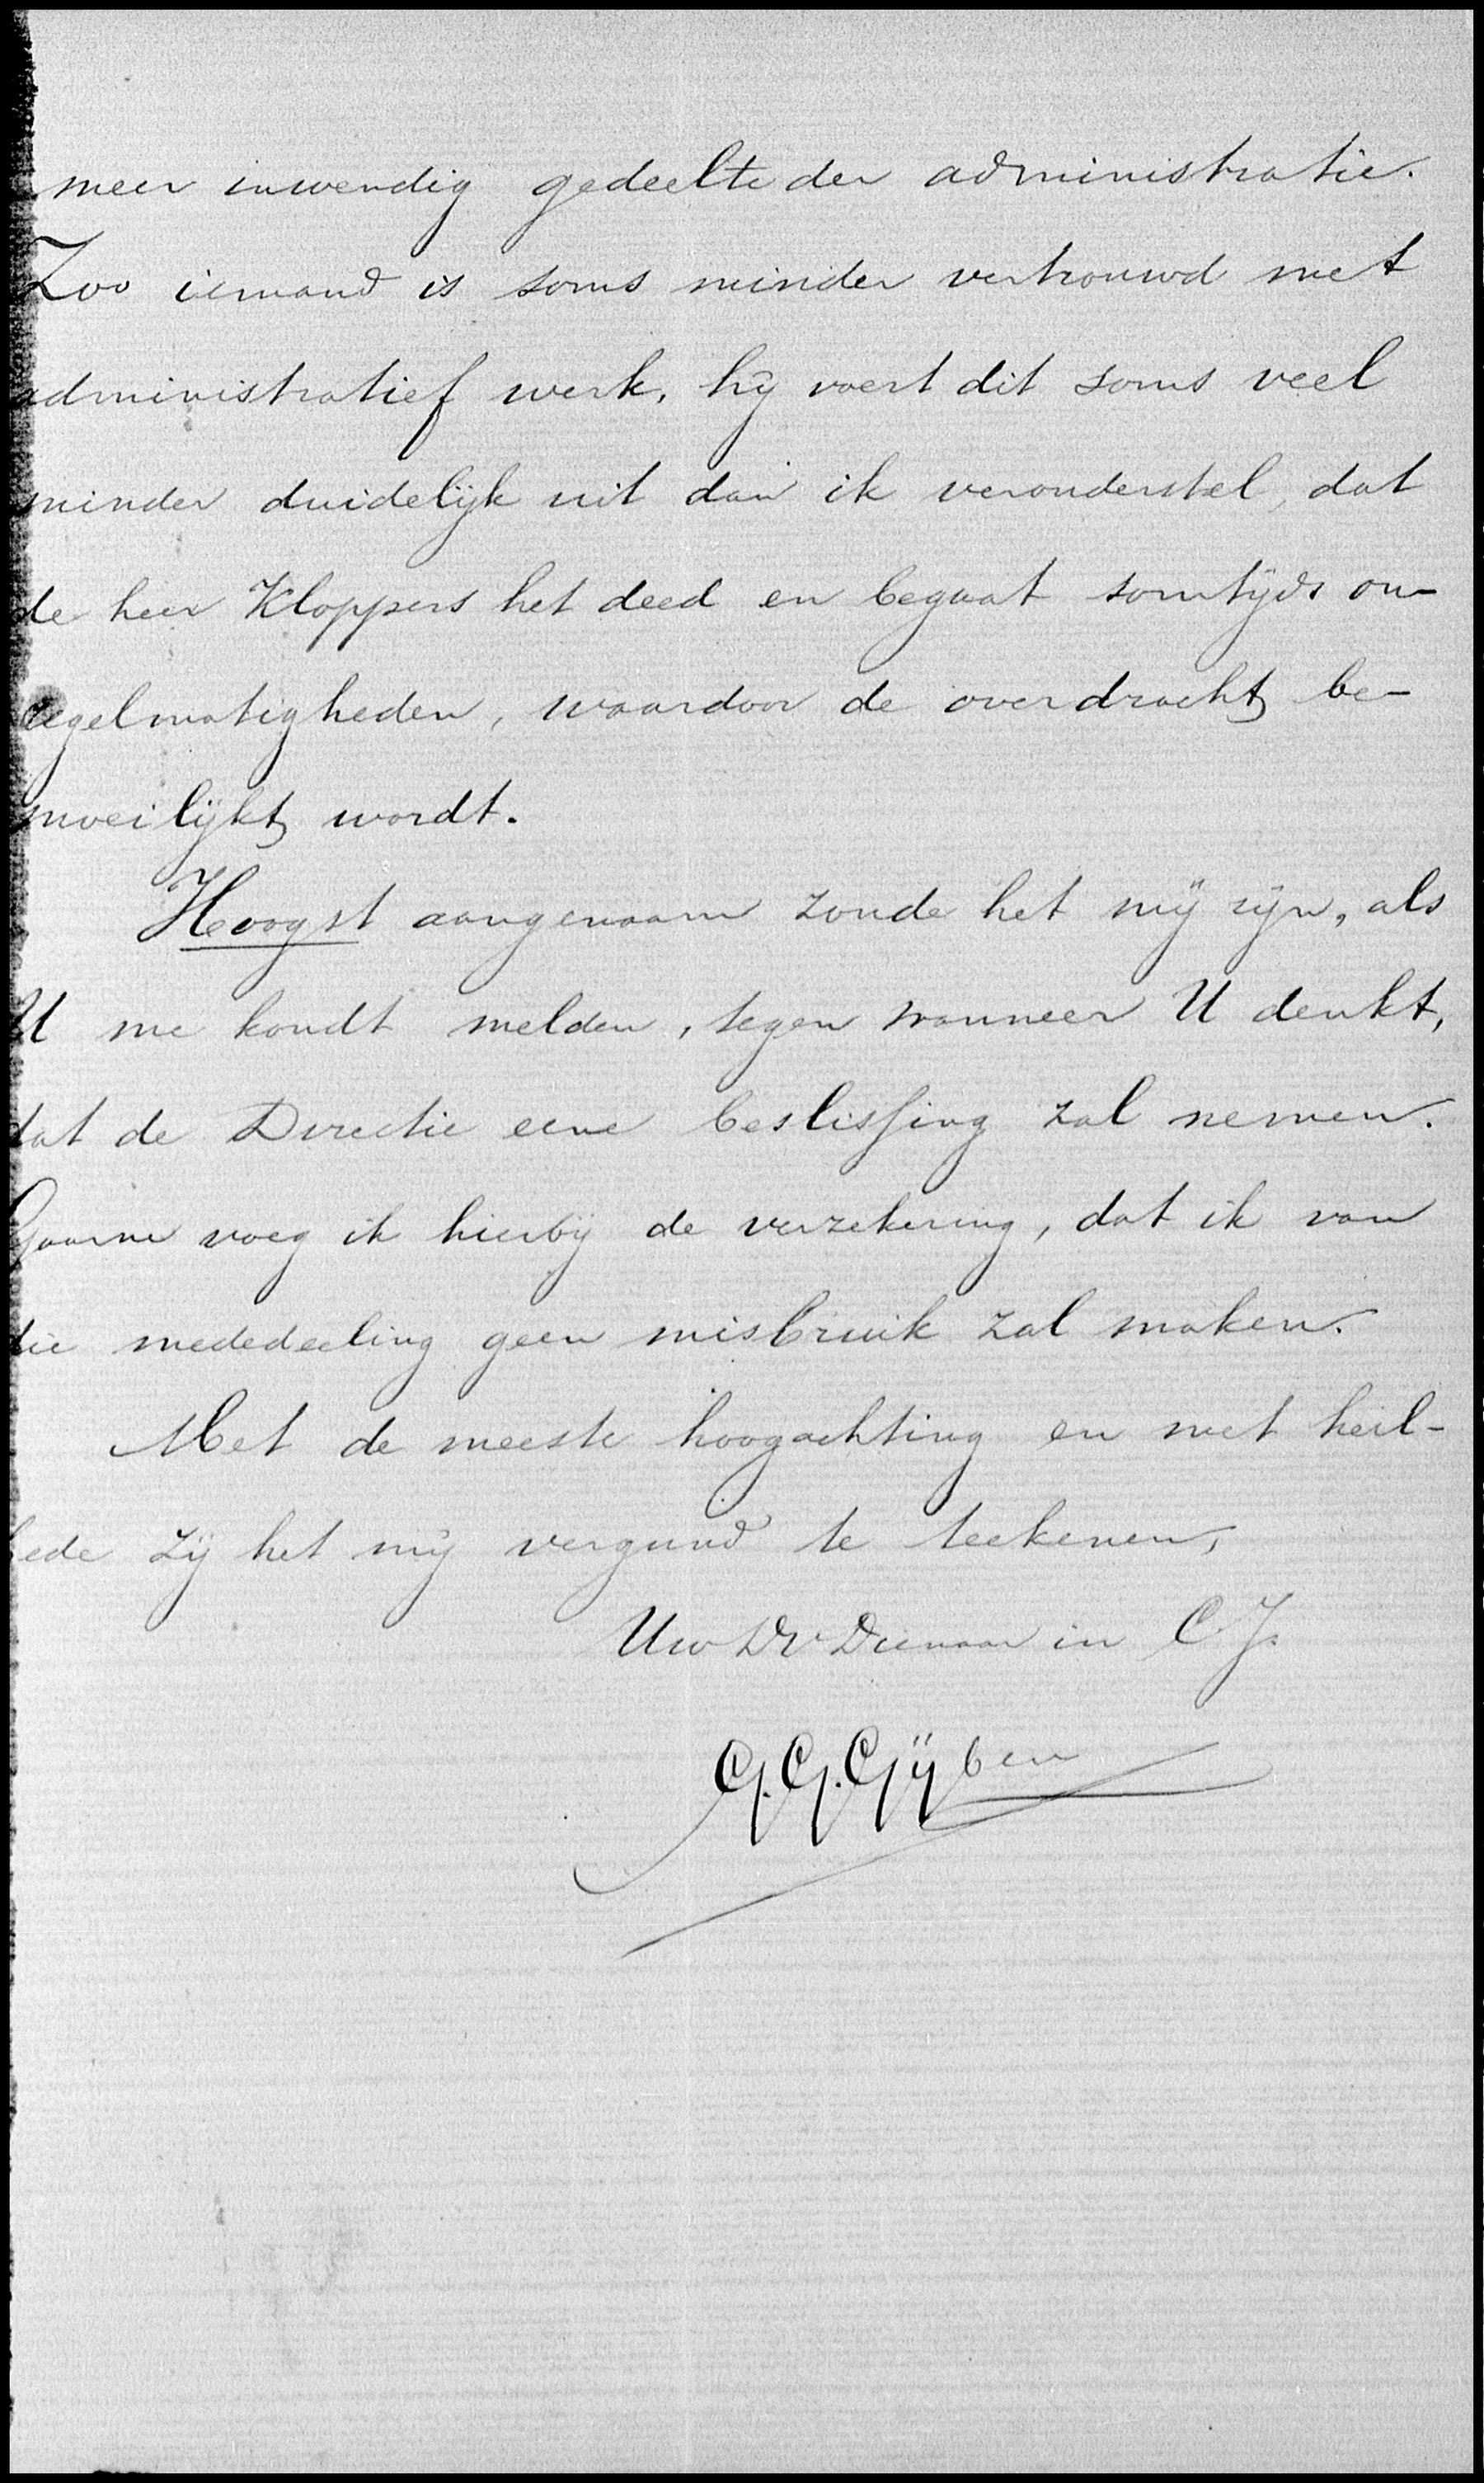 meer inwendig gedeelte der administratie.
Zoo iemand is soms minder vertrouwd met
administratief werk, hij voert dit soms veel
minder duidelijk uit dan ik veronderstel, dat
de heer Kloppers het deed en begaat somtijds on-
regelmatigheden, waardoor de overdracht be-
moeilijkt wordt.
Hoogst aangenaam zoude het mij zijn, als
U me kondt melden, tegen wanneer U denkt,
dat de Directie eene beslissing zal nemen.
Gaarne voeg ik hierbij de verzekering, dat ik van
die mededeeling geen misbruik zal maken.
Met de meeste hoogachting en met heil-
bede zij het mij vergund te teekenen,
Uw Dv Dienaar in C. J.
G. G. Gijben